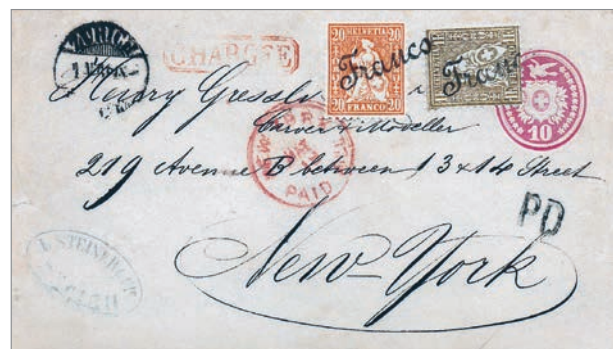 ZÜRICH
CHARGÉE
20 HELVETIA 20
20 FRANCO 20
Franco
Franco
10
Henry Gressly
Carver & Modeller
219 Avenue B between 13 & 14 Street
NEW YORK
PAID
PD
J. STEINER & Co
New-York